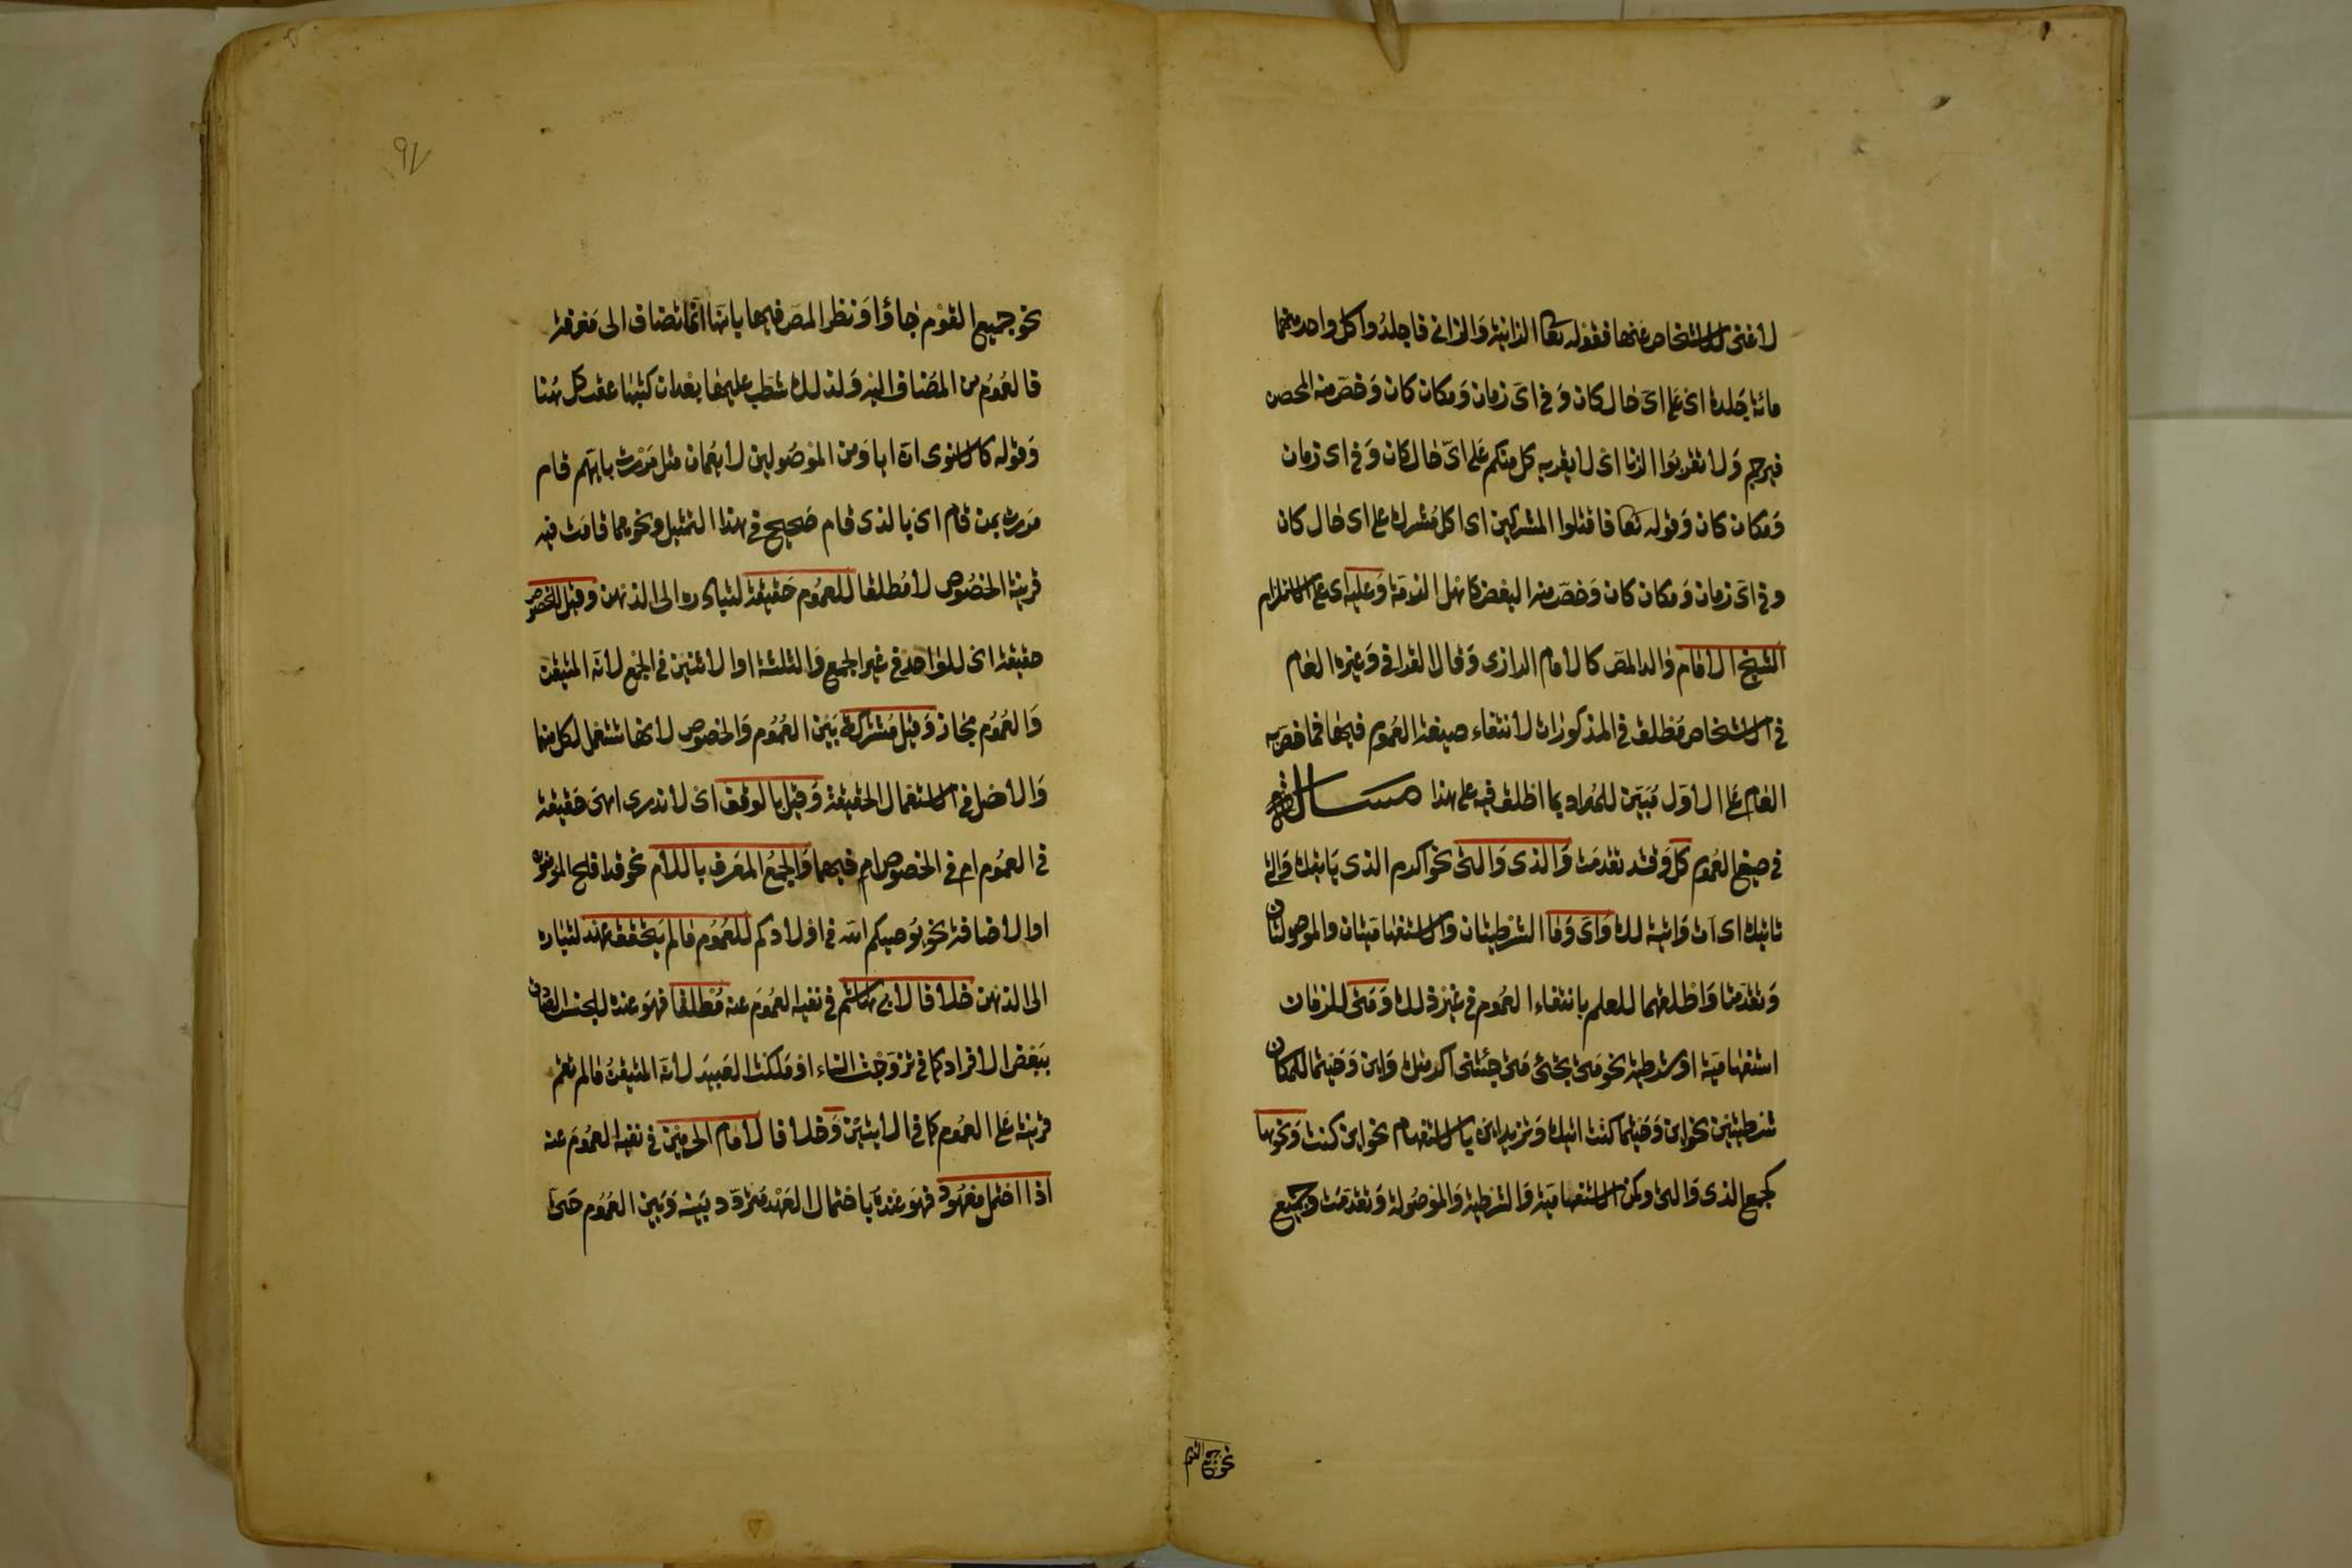 لا غنى للاشخاص عنها فقوله تعا الزانية والزانى فاجلدوا كل واحد منهما
مائة جلدة اى على اى حال كان وفى اى زمان ومكان كان وخص منه المحصن
فيرجم ولا تقربوا الزنا اى لا يقربه كل منكم على اى حال كان وفى اى زمان
ومكان كان وقوله تعا فاقتلوا المشركين اى كل مشرك على اى حال كان
وفى اى زمان ومكان كان وخص منه البعض كاهل الذمة وعليه اى على الاستلزام
الشيخ الامام والد المص كالامام الرازى وقال القرافى وغيره العام
فى الاشخاص مطلق فى المذكورات لانتفاء صيغة العموم فيها فما خص به
العام على الاول مبين للمراد بما اطلق فيه على هذا مسالة
فى صيغ العموم كل وقد تقدمت والذى والتى نحو اكرم الذى ياتيك والتى
تاتيك اى آت وآتية لك واى وما الشرطيتان والاستفهاميتان والموصولتان
وتقدمتا واطلقهما للعلم بانتفاء العموم فى غير ذلك ومتى للزمان
استفهامية او شرطية نحو متى تجئى متى جئتنى اكرمتك واين وحيثما للمكان
شرطيتين نحو اين وحيثما كنت اتيك وتزيد اين بالاستفهام نحو اين كنت ونحوها
كجمع الذى والتى وكمن الاستفهامية والشرطية والموصولة وتقدمت وجميع
نحو جميع القوم
٩٧
نحو جميع القوم جاؤا ونظر المص فيها بانها انما تضاف الى معرفة
فالعموم من المضاف اليه ولذلك شطب عليها بعد ان كتبها عقب كل هنا
وقوله كالاسنوى ان ايا ومن الموصولين لا يعمان مثل مررت بايهم قام
مررت بمن قام اى بالذى قام صحيح فى هذا التمثيل ونحوه مما قامت فيه
قرينة الخصوص لا مطلقا للعموم حقيقة لتبادره الى الذهن وقيل للخصوص
حقيقة اى للواحد فى غير الجمع والثلثة او الاثنين فى الجمع لانه المتيقن
والعموم مجاز وقيل مشتركة بين العموم والخصوص لانها تستعمل لكل منهما
والاصل فى الاستعمال الحقيقة وقيل بالوقف اى لا ندرى اهى حقيقة
فى العموم ام فى الخصوص ام فيهما والجمع المعرف باللام نحو قد افلح المؤمنون
او الاضافة نحو يوصيكم الله فى اولادكم للعموم ما لم يتحقق عهد لتبادره
الى الذهن خلافا لابى هاشم فى نفيه العموم عنه مطلقا فهو عنده للجنس الصادق
ببعض الافراد كما فى تزوجت النساء او ملكت العبيد لانه المتيقن ما لم تقم
قرينة على العموم كما فى الايتين وخلافا لامام الحرمين فى نفيه العموم عنه
اذا احتمل معهود فهو عنده باحتمال العهد متردد بينه وبين العموم حتى